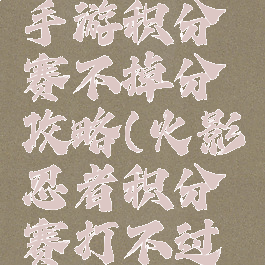 手游积分
赛不掉分
攻略(火影
忍者积分
赛打不过